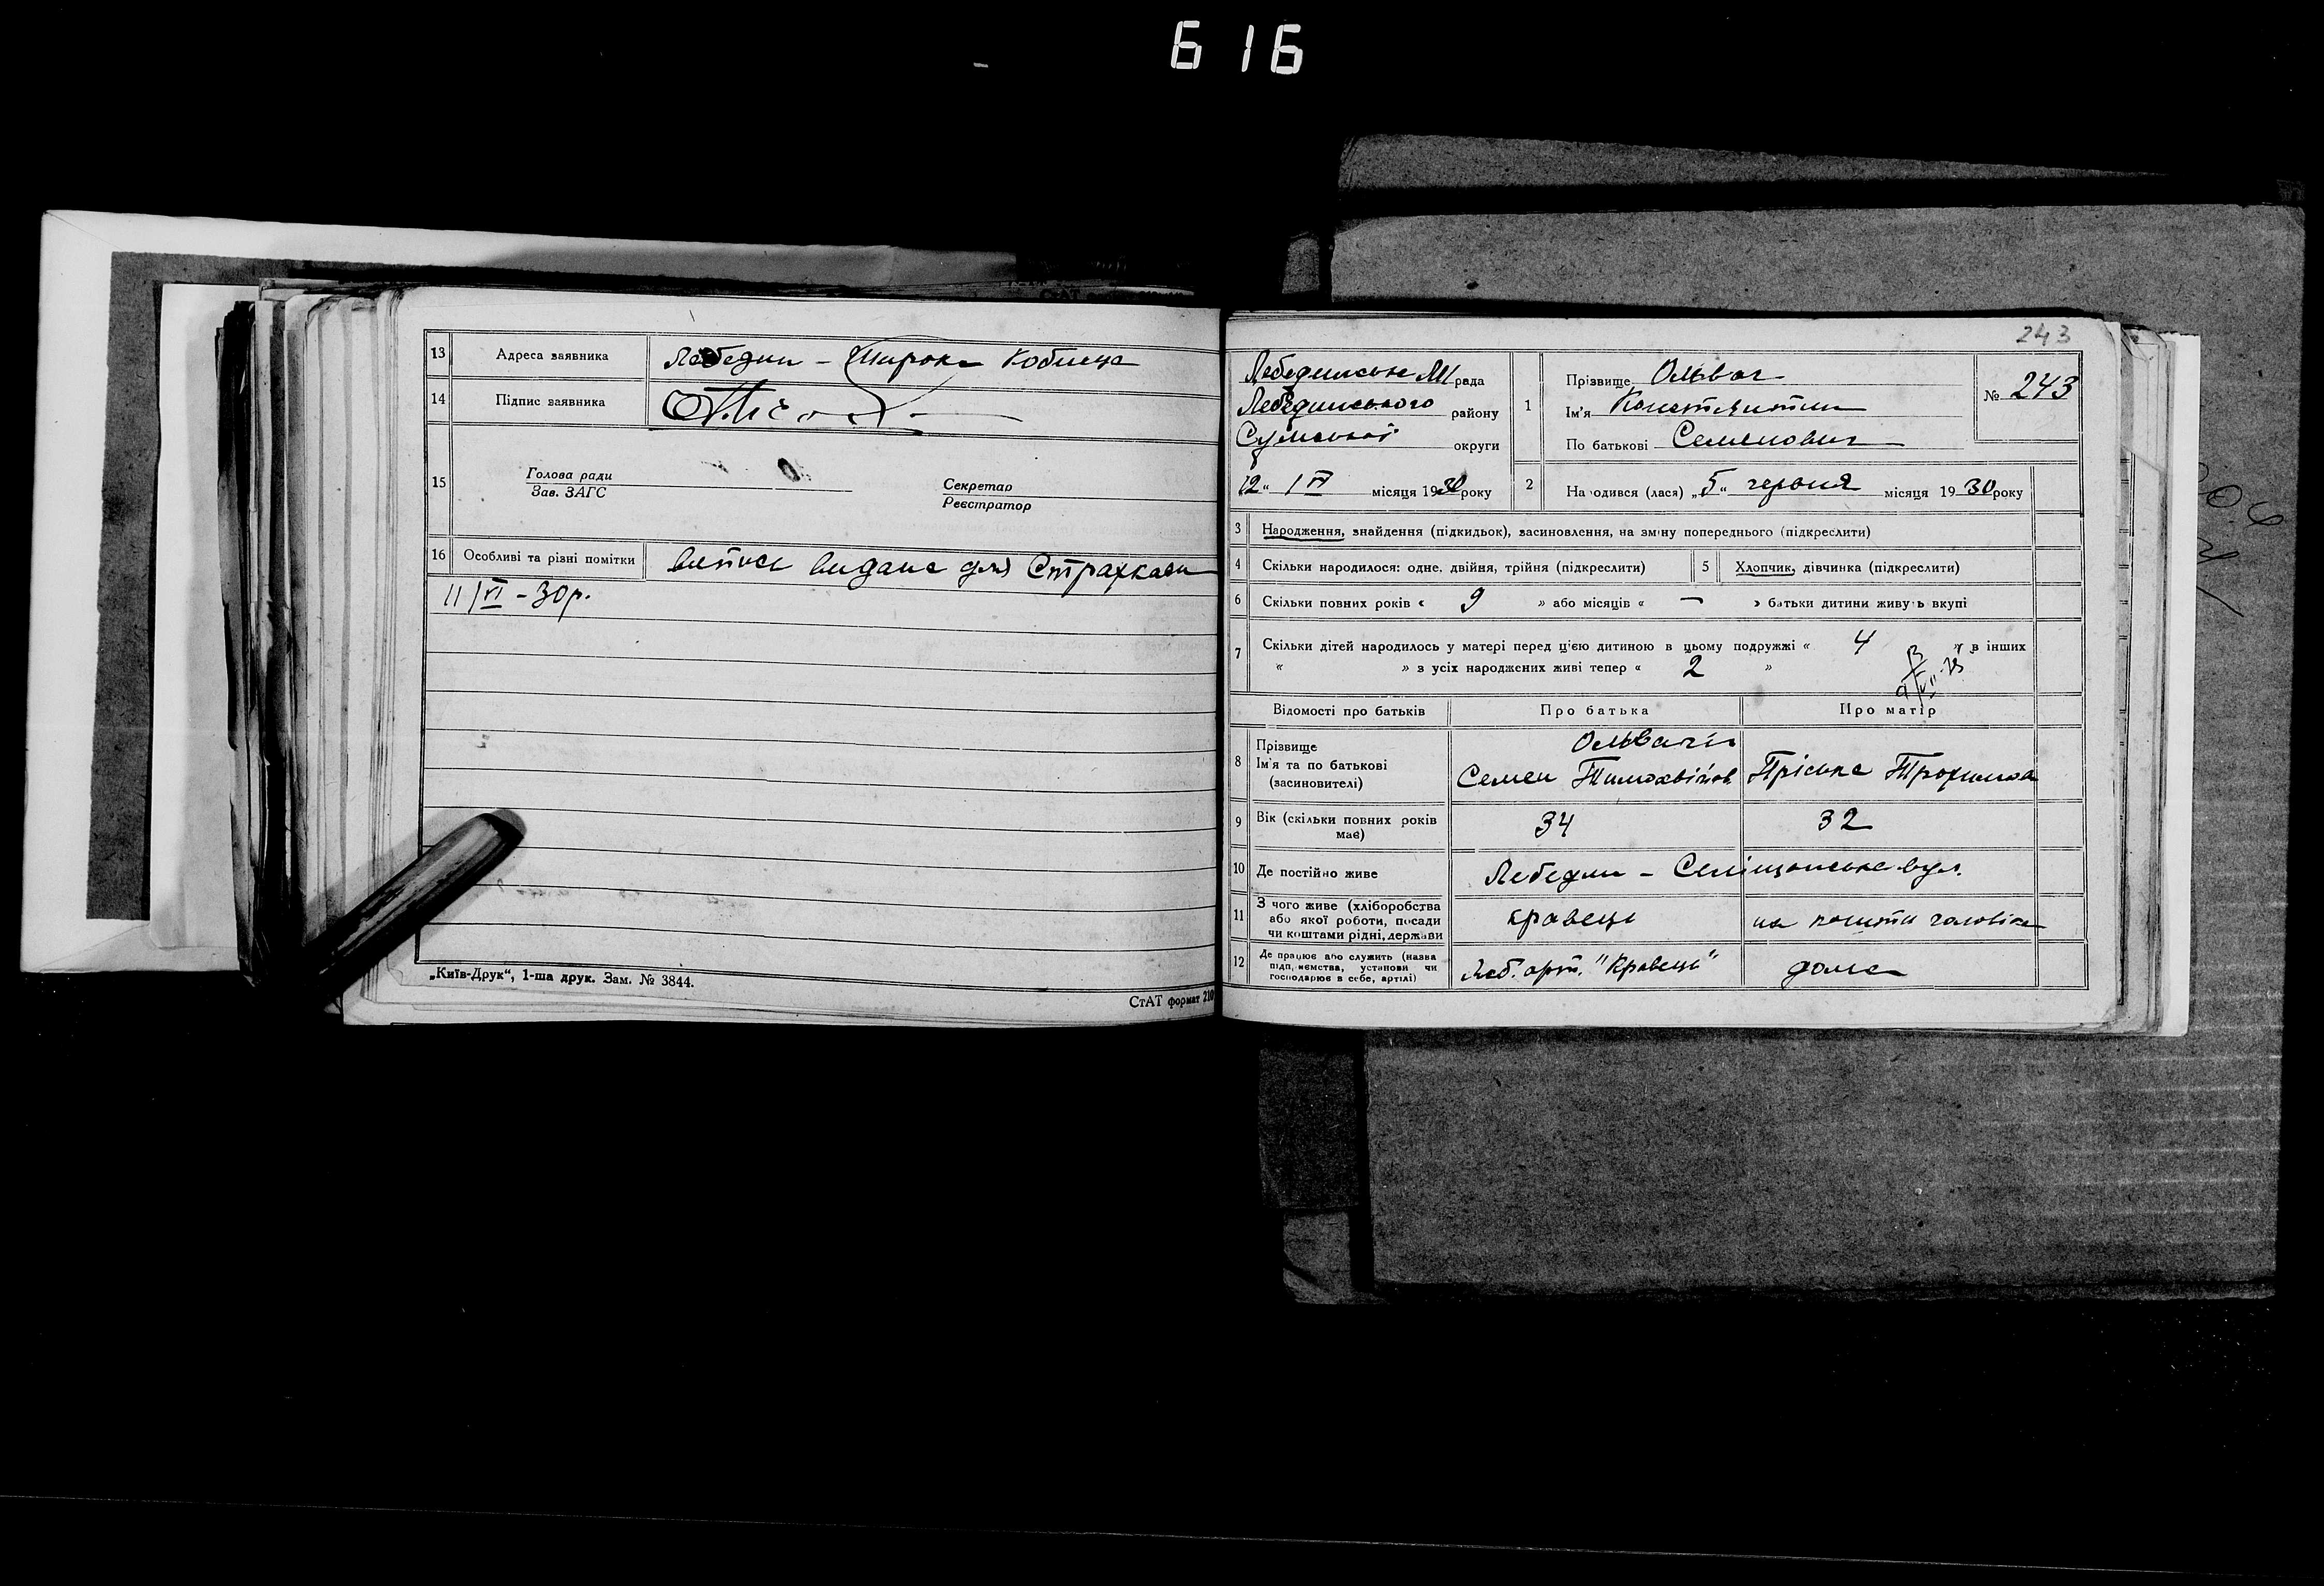 616
13 Адреса заявника Лебедин – Широка Кобижча
14 Підпис заявника
15 Голова ради
Зав. ЗАГС
Секретар
Реєстратор
16 Особливі та різні помітки випис видана для Страхкаси
11/VI – 30 р.
„Київ-Друк“, 1-ша друк. Зам. № 3844.
СтАТ формат 210
243
Лебединська М рада
Лебединського району
Сумської округи
12 “ / VI місяця 1930 року
1 Прізвище Ольвач
Ім'я Константин
По батькові Семенович
№ 243
2 Народився (лася) „5“ червня місяця 1930 року
3 Народження, знайдення (підкидьок), засиновлення, на зміну попереднього (підкреслити)
4 Скільки народилося: одне, двійня, трійня (підкреслити)
5 Хлопчик, дівчинка (підкреслити)
6 Скільки повних років « 9 » або місяців « — » батьки дитини живуть вкупі
7 Скільки дітей народилось у матері перед цією дитиною в цьому подружжі « 4 » в інших
« » з усіх народжених живі тепер « 2 »
Відомості про батьків
Про батька
Про матір
8 Прізвище
Ім'я та по батькові
(засиновителі)
Ольвачі
Семен Тимохвійов
Пріська Трохимова
9 Вік (скільки повних років має)
34
32
10 Де постійно живе
Лебедин – Селіщанська вул.
11 З чого живе (хліборобства
або якої роботи, посади
чи коштами рідні, держави
кравець
на кошти чоловіка
12 Де працює або служить (назва
підприємства, установи чи
господарює в себе, артілі)
Леб. арт. "Кравець"
дома